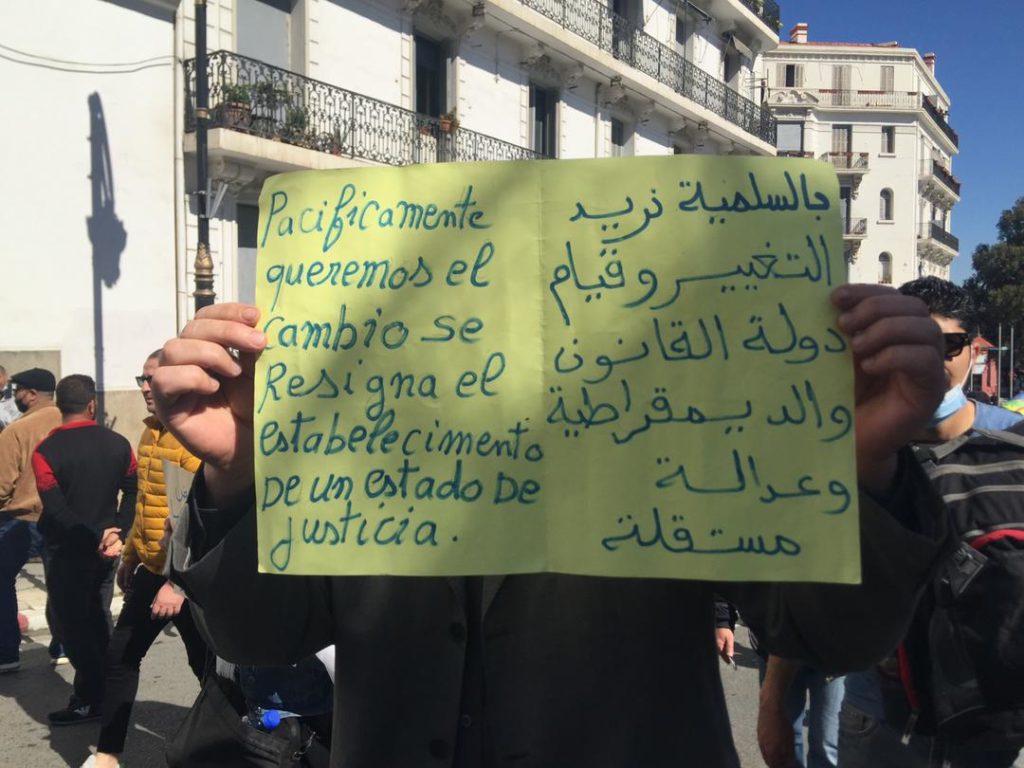 Pacificamente
queremos el
cambio se
Resigna el
establecimento
De un estado De
justicia.
بالسلمية نريد
التغيير وقيام
دولة القانون
والديمقراطية
وعدالة
مستقلة